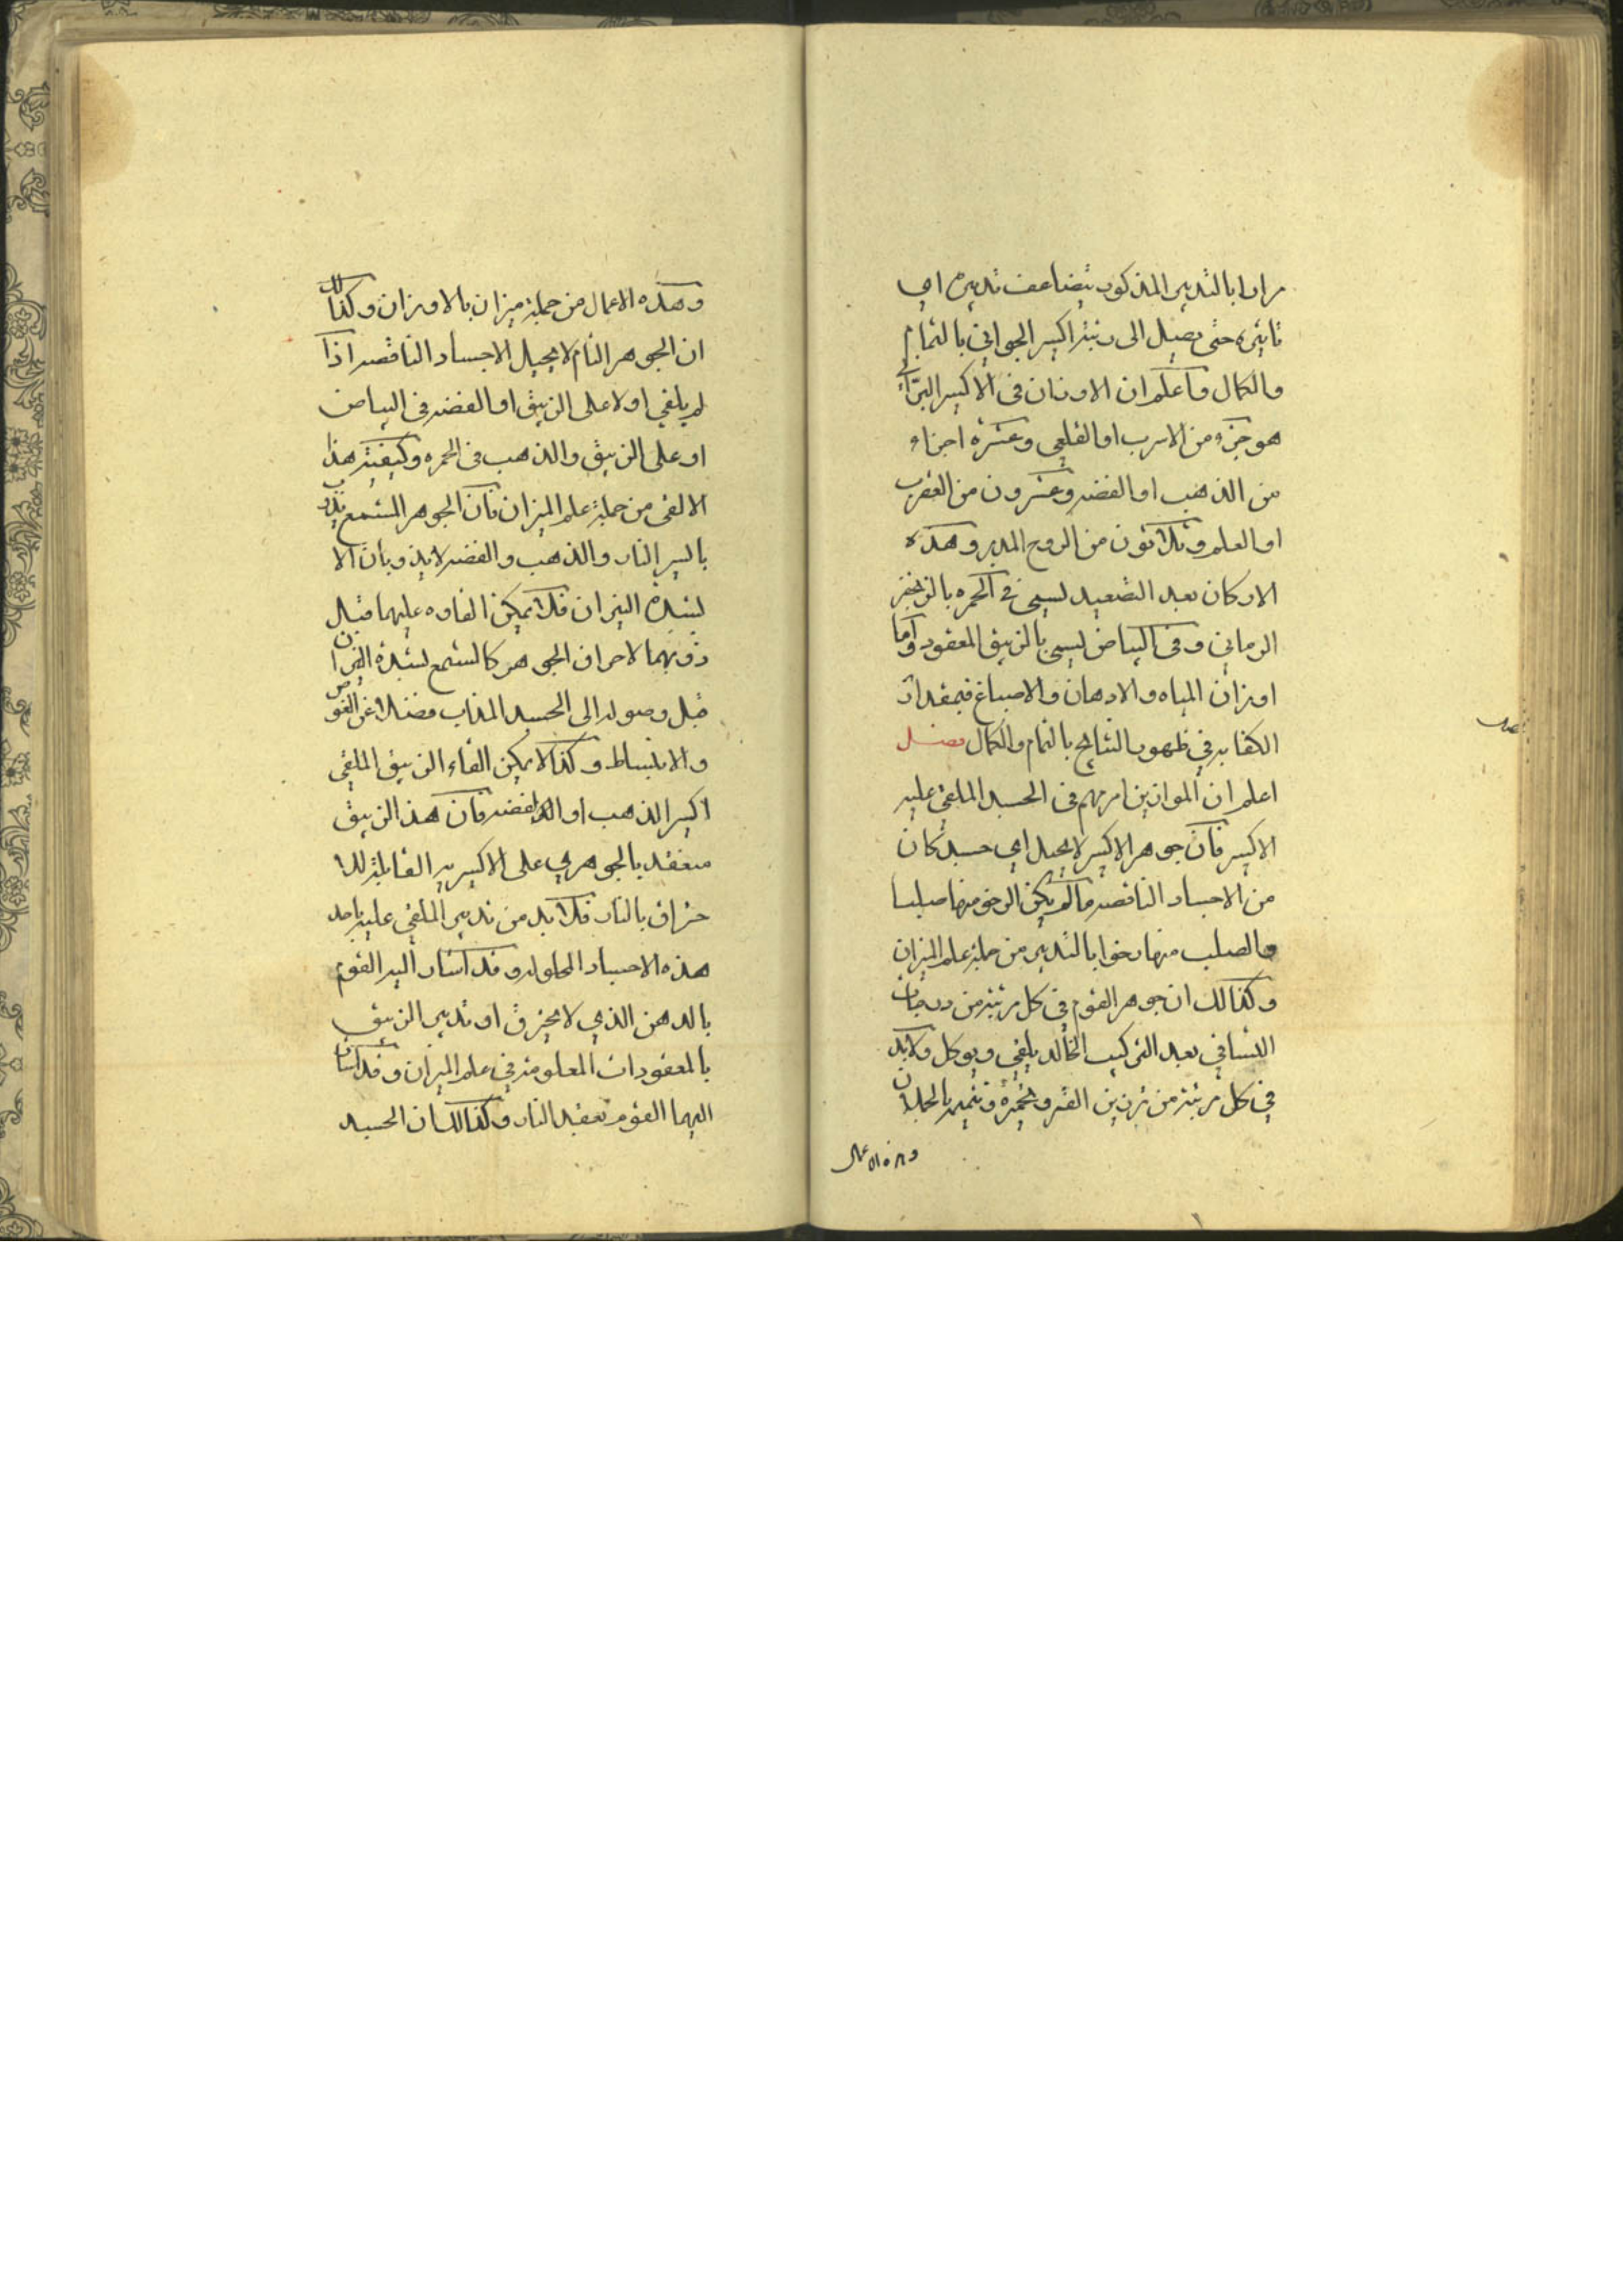 مرارا بالتدبير المذكور يتضاعف تدبيره اي
تاثيره حتى يصل الى رتبة اكسير الجواني بالتمام
والكمال واعلم ان الاوزان في الاكسير البراني
هو جزء من الاسرب او القلعي وعشرة اجزاء
من الذهب او الفضه وعشرون من العقرب
او العلم وثلاثون من الروح المدبر وهذه
الاركان بعد التصعيد يسمى في الحمره بالزنجفر
الرماني وفي البياض يسمى بالزيبق المعقود واما
اوزان المياه والادهان والاصباغ فبمقدار
الكفايه في ظهور النتايج بالتمام والكمال فصل
اعلم ان الموازين امرتهم في الجسد الملقى عليه
الاكسير فان جوهر الاكسير لا يحيل اي جسد كان
من الاجساد الناقصه ما لم يكن الرخو منها صلبا
والصلب منها رخوا بالتدبير من جملة علم الميزان
وكذالك ان جوهر القوم في كل مرتبة من درجات
الثساقي بعد التركيب الخالد يلقى ويوكل ولابد
في كل مرتبة من تزيين القمر وتخميره وتتميمه بالجملان
وهذه الاعمال
فصل
وهذه الاعمال من جملة ميزان بالاوزان وكذالك
ان الجوهر التام لا يحيل الاجساد الناقصه اذا
لم يلقى اولا على الزيبق او الفضه في البياض
او على الزيبق والذهب في الحمره وكيفية هذا
الالقى من جملة علم الميزان فان الجوهر المشمع يذوب
باليسر النار والذهب والفضه لا يذوبان الا
لشدة النيران فلا يمكن القاوه عليهما قبل
ذوبهما لاحراق الجوهر كالشمع لشدة النيران
قبل وصوله الى الجسد المذاب فضلا عن الغوص
والانبساط وكذا لا يمكن القاء الزيبق الملقى
اكسير الذهب او الفضه فان هذا الزيبق
منعقد بالجوهري على الاكسيريه القابلة للا
حتراق بالنار فلا بد من تدبير الملقى عليه باحد
هذه الاجساد المحلوله وقد اشار اليه القوم
بالدهن الذي لا يحترق او تدبير الزيبق
بالمعقودات المعلومه في علم الميزان وقد اشار
اليهما القوم بعقيد النار وكذالك ان الجسد